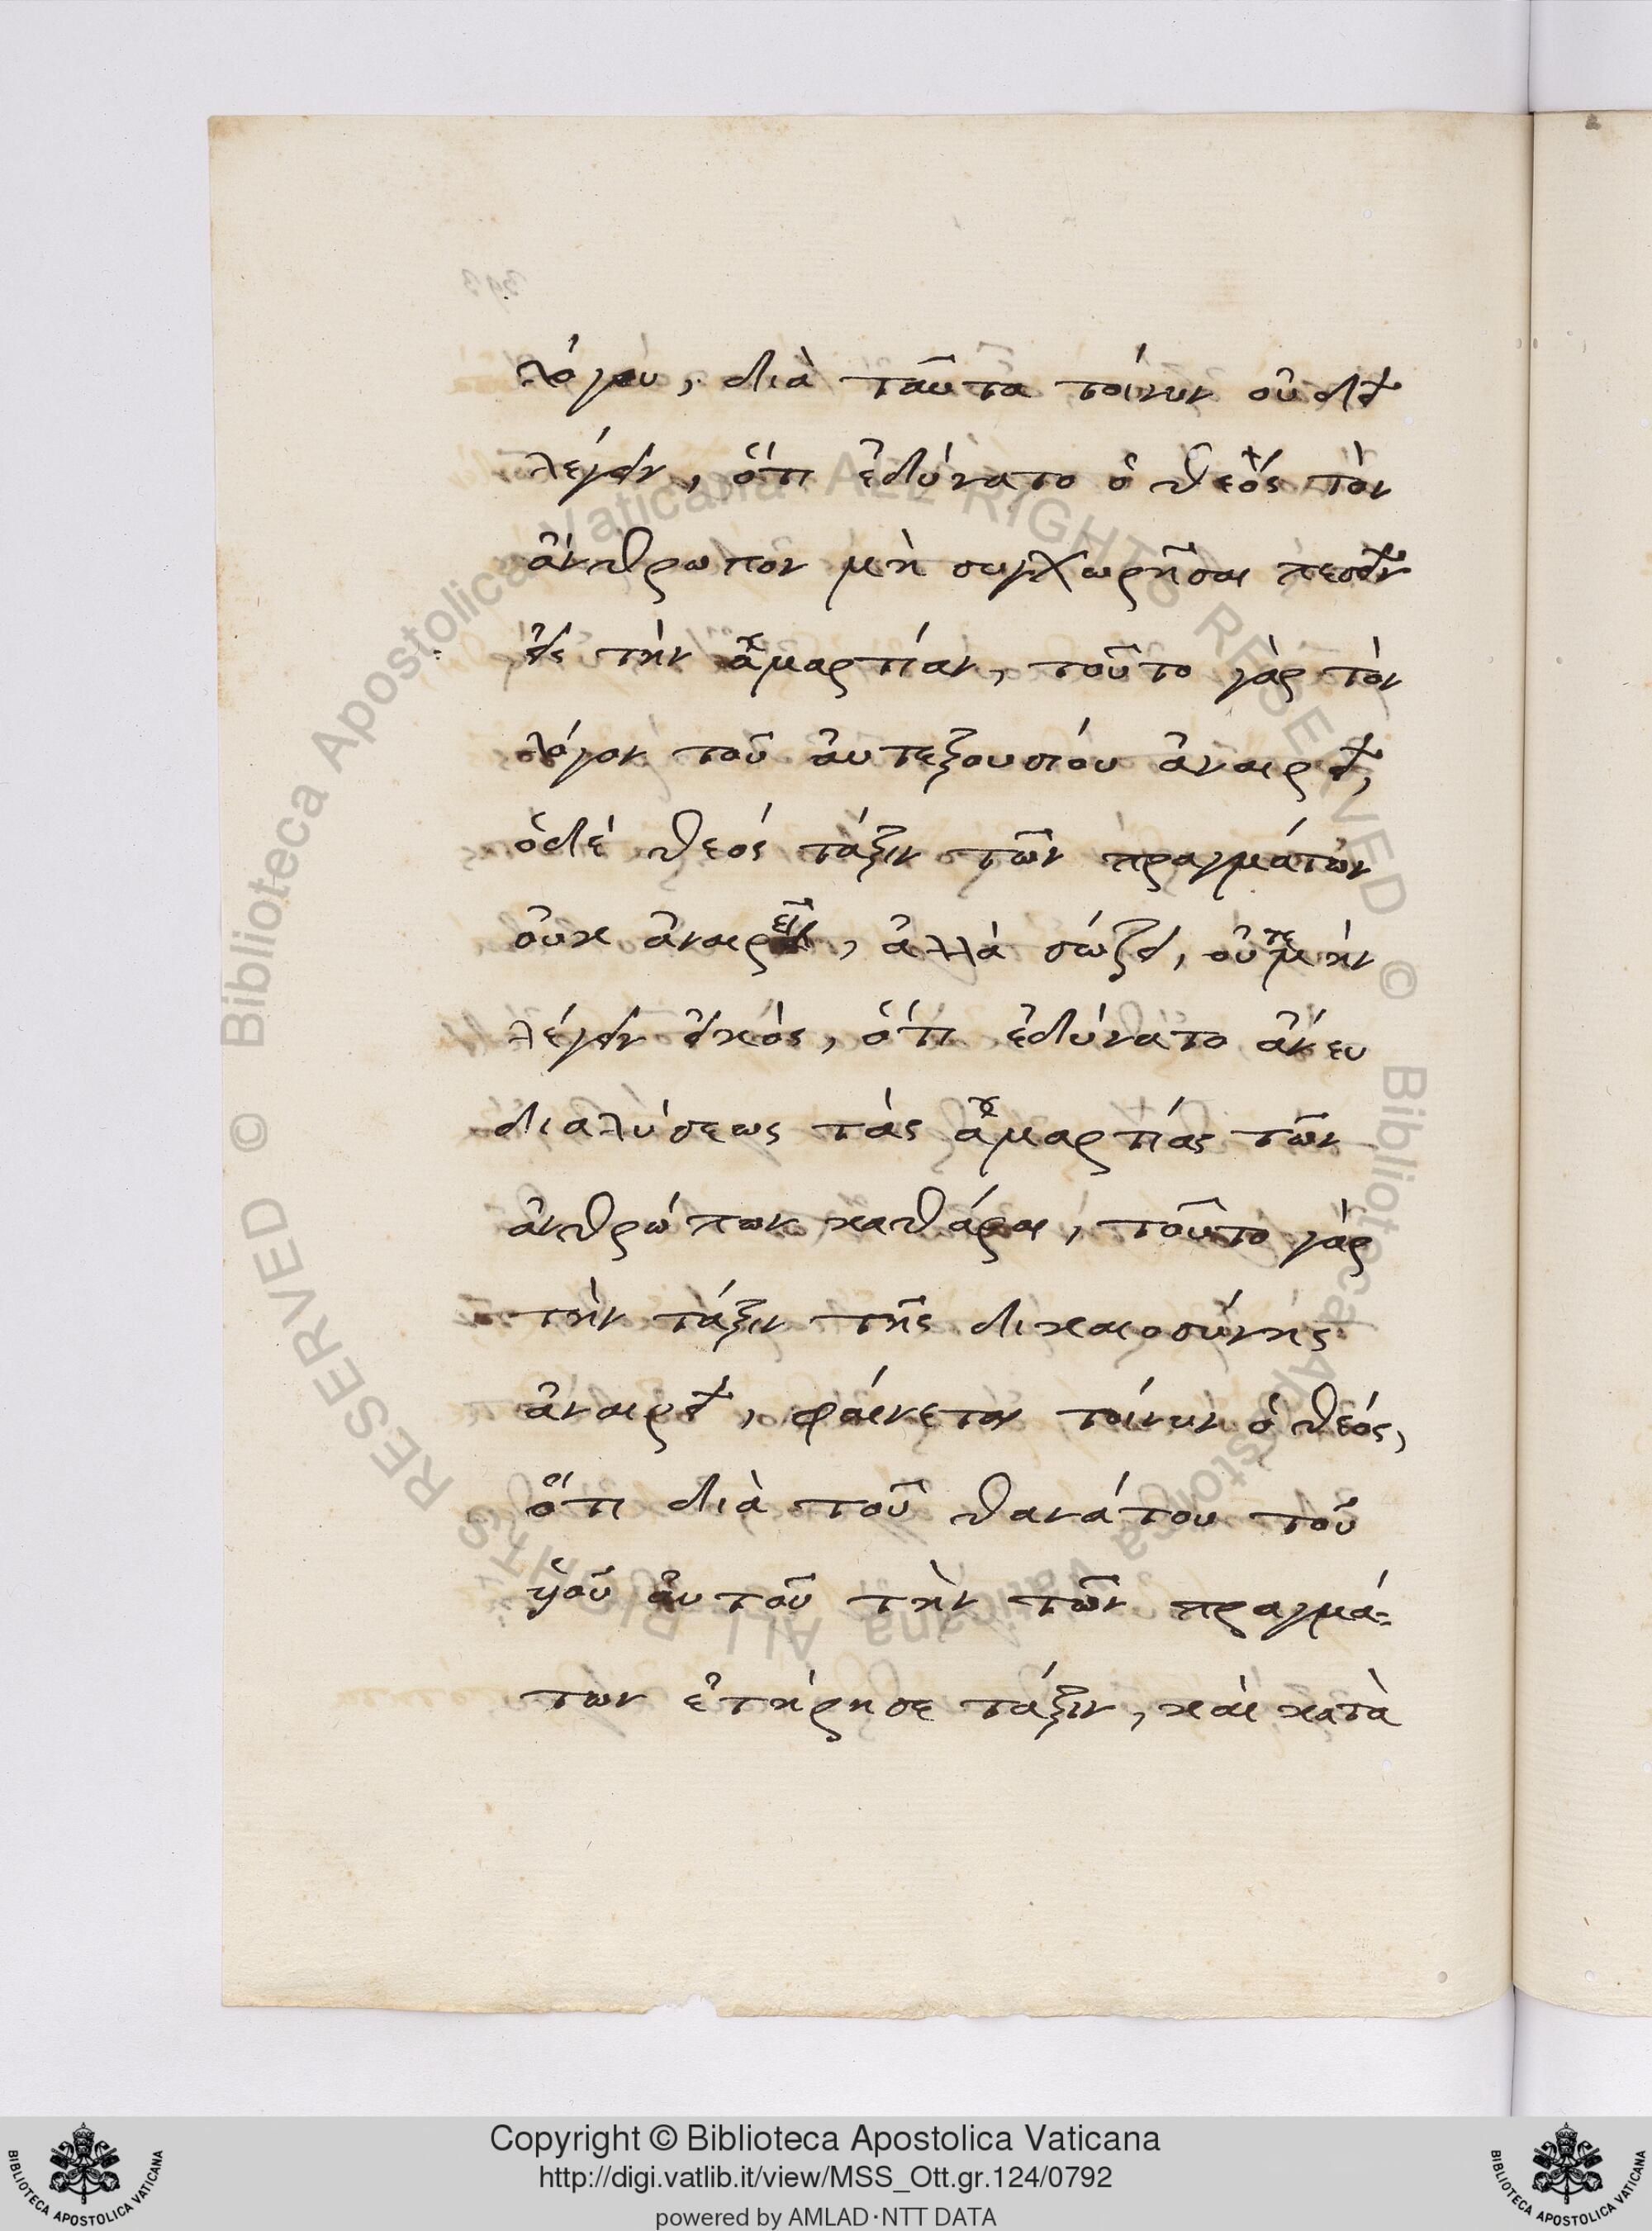 λόγου, διὰ ταῦτα τοίνυν οὐ δεῖ
λέγειν, ὅτι ἐδύνατο ὁ θεὸς τὸν
ἄνθρωπον μὴ συγχωρῆσαι πεσεῖν
εἰς τὴν ἁμαρτίαν, τοῦτο γὰρ τὸν
λόγον τοῦ αὐτεξουσίου ἀναιρεῖ,
ὁδὲ θεός τάξιν τῶν πραγμάτων
οὐκ ἀναιρεῖ, ἀλλὰ σώζει, οὐ μὴν
λέγειν εἰκός, ὅτι ἐδύνατο ἄνευ
διαλύσεως τὰς ἁμαρτίας τῶν
ἀνθρώπων καθάραι, τοῦτο γὰρ
τὴν τάξιν τῆς δικαιοσύνης
ἀναιρεῖ, φαίνεται τοίνυν ὁ θεός,
ὅτι διὰ τοῦ θανάτου τοῦ
ὑοῦ αὐτοῦ τὴν τῶν πραγμά-
των ἐτήρησε τάξιν, καὶ κατὰ
Copyright © Biblioteca Apostolica Vaticana
http://digi.vatlib.it/view/MSS_Ott.gr.124/0792
powered by AMLAD·NTT DATA
BIBLIOTECA APOSTOLICA VATICANA
BIBLIOTECA APOSTOLICA VATICANA